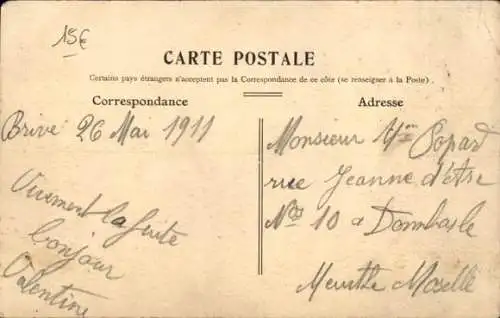 15€
CARTE POSTALE
Certains pays étrangers n'acceptent pas la Correspondance de ce côté (se renseigner à la Poste).
Correspondance
Brive 26 Mai 1911
Vivement la suite
bonjour
Valentine
Adresse
Monsieur
rue Jeanne d'Arc
No 10 a Dombasle
Meurthe Moselle